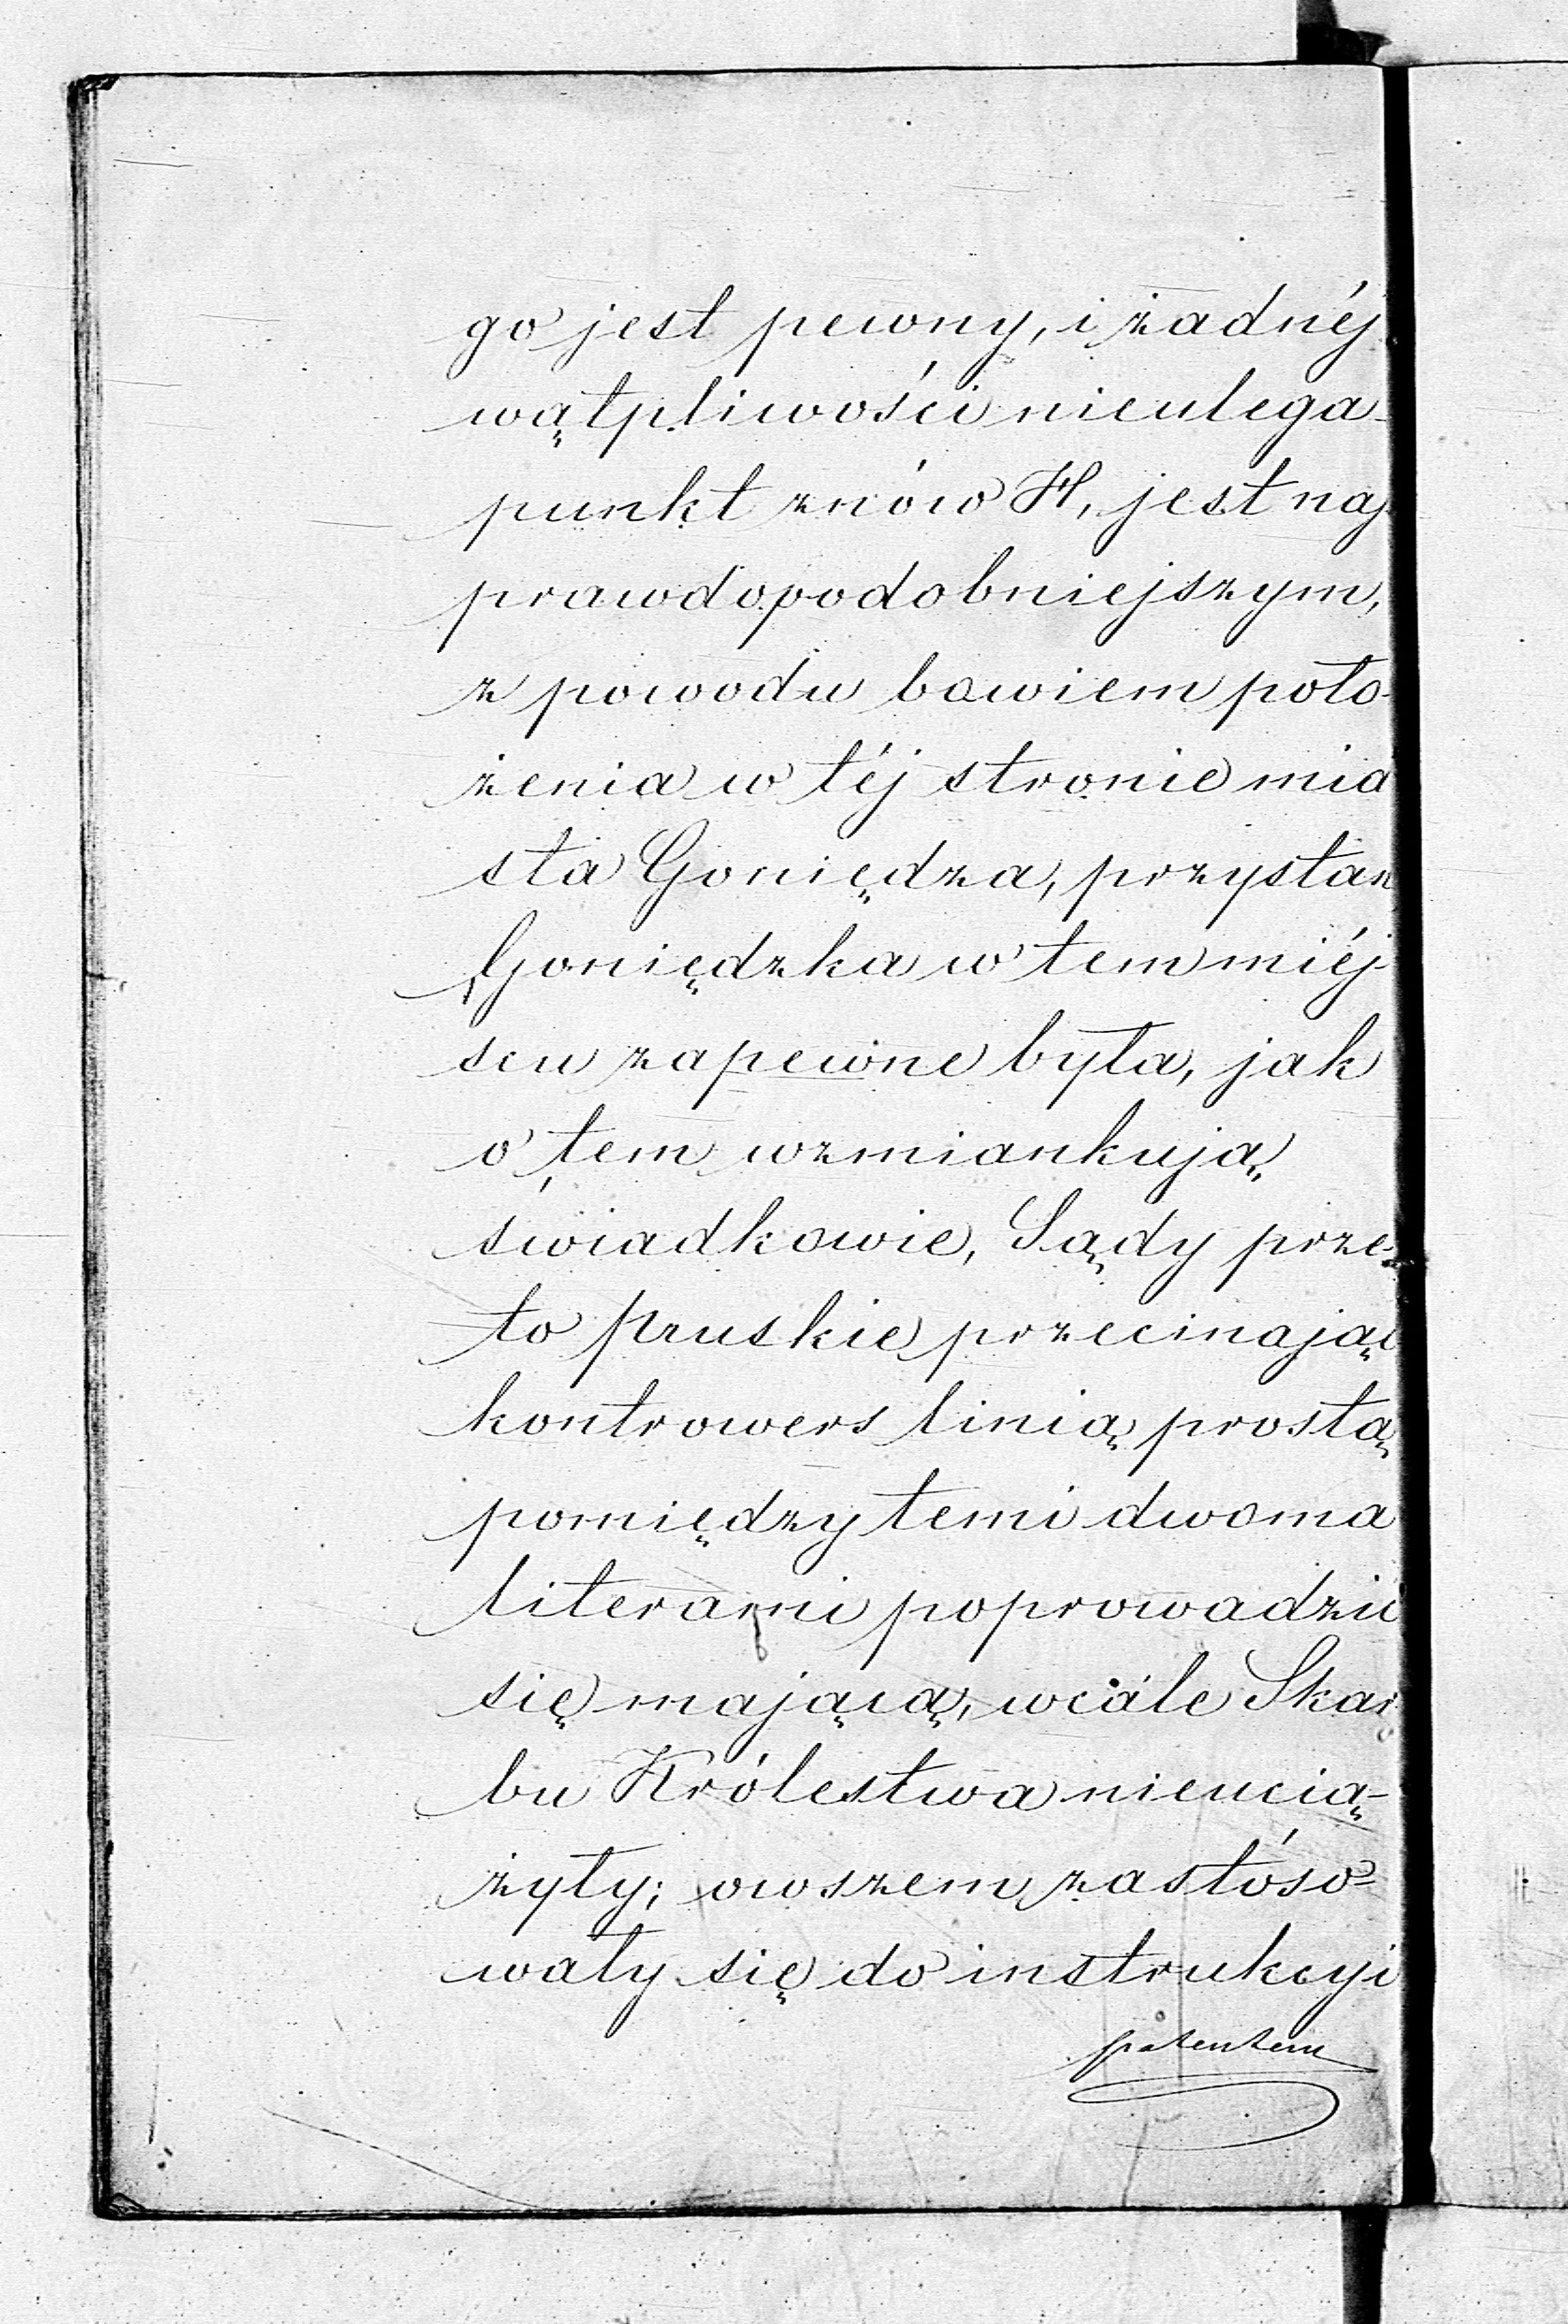 go jest pewny, i żadnéj
wątpliwości nieulega
punkt znów H, jest naj
prawdopodobniejszym,
z powodu bowiem poło-
żenia w téj stronie mia
sta Goniędza, przystań
Goniędzka w tem miéj-
scu zapewne była, jak
o tem wzmiankują
świadkowie, Sądy prze-
to Pruskie przecinając
kontrowers linią prostą
pomiędzy temi dwoma
literami poprowadzić
się mającą, wcale Skar
bu Królestwa nieucią-
żyły; owszem zastóso-
wały się do instrukcyi
patentem